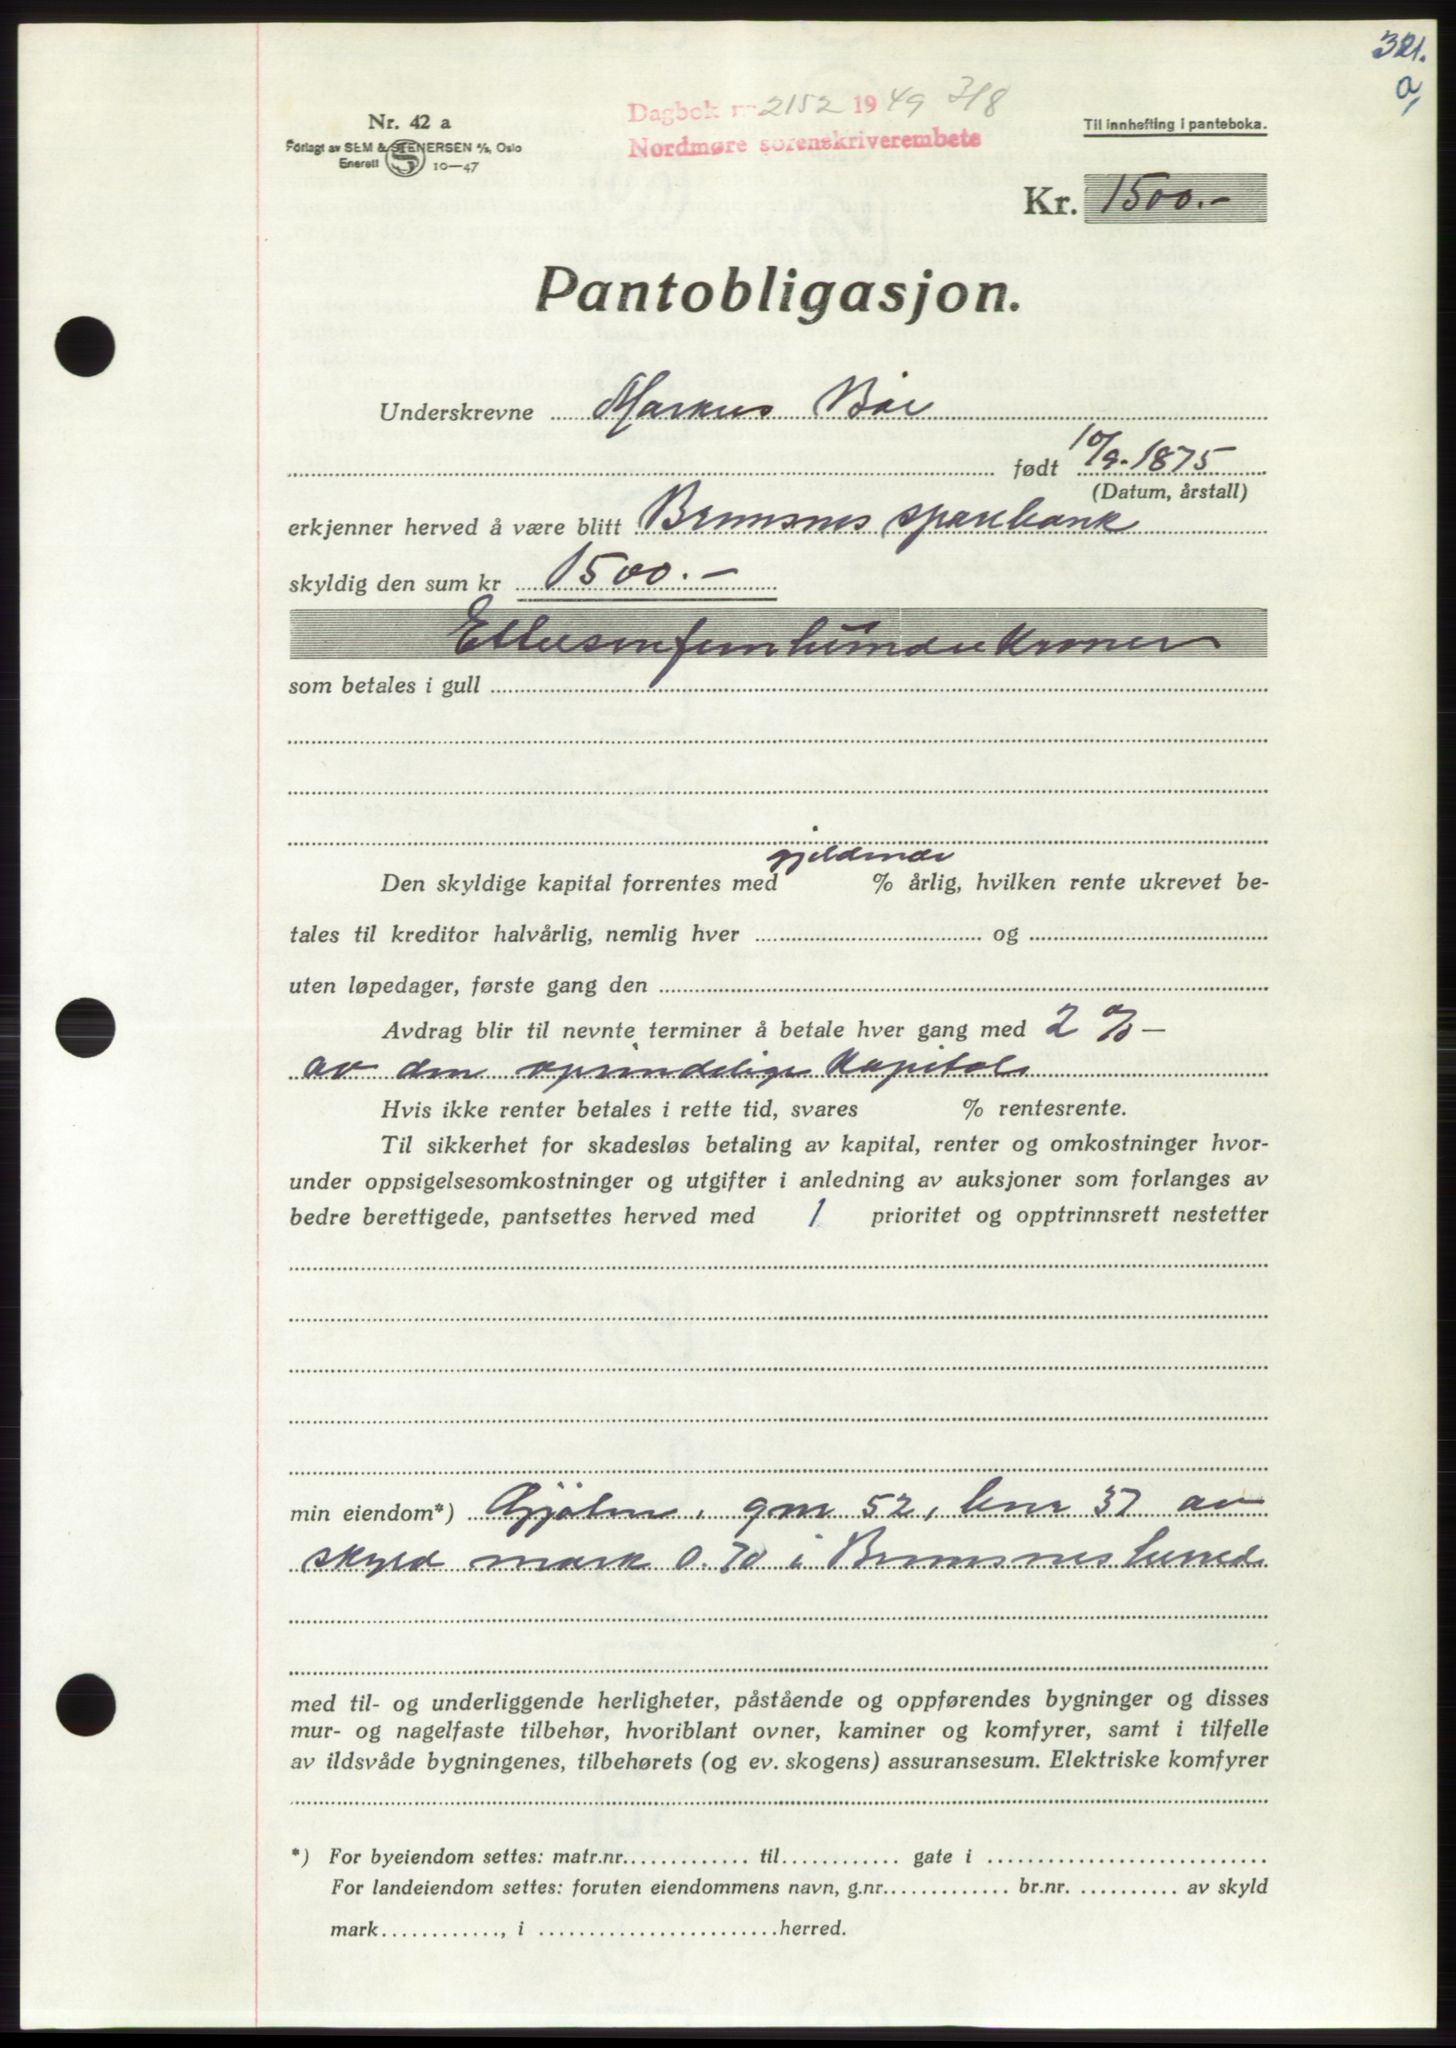 321.
a,
Nr. 42 a
Forlagt av SEM & STENERSEN A/S, Oslo
Enerett S 10—47
Dagbok nr 2152 1949 3/8
Nordmøre sorenskriverembete
Til innhefting i panteboka.
Kr. 1500.-
Pantobligasjon.
Underskrevne Markus Bøe
født 10/9-1875
(Datum, årstall)
erkjenner herved å være blitt Bremsnes sparebank
skyldig den sum kr 1500.-
Ettusenfemhundre kroner
som betales i gull
gjeldende
Den skyldige kapital forrentes med % årlig, hvilken rente ukrevet be-
tales til kreditor halvårlig, nemlig hver og
uten løpedager, første gang den
Avdrag blir til nevnte terminer å betale hver gang med 2 % -
av den oprindelige kapital
Hvis ikke renter betales i rette tid, svares % rentesrente.
Til sikkerhet for skadesløs betaling av kapital, renter og omkostninger hvor-
under oppsigelsesomkostninger og utgifter i anledning av auksjoner som forlanges av
bedre berettigede, pantsettes herved med 1 prioritet og opptrinnsrett nestetter
min eiendom*) gnr 52, bnr 37 av
skyld mark 0.70 i Bremsnes herred
med til- og underliggende herligheter, påstående og oppførendes bygninger og disses
mur- og nagelfaste tilbehør, hvoriblant ovner, kaminer og komfyrer, samt i tilfelle
av ildsvåde bygningenes, tilbehørets (og ev. skogens) assuransesum. Elektriske komfyrer
*) For byeiendom settes: matr.nr............. til............ gate i ............................
For landeiendom settes: foruten eiendommens navn, g.nr............. br.nr. .......... av skyld
mark............, i ........................herred.